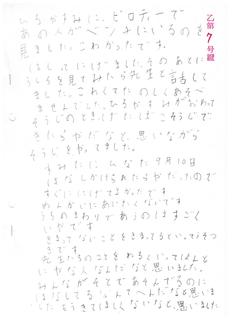 乙第7号證
ひるやすみに、ピロティーで
あの人がベンチにいるのを
見ました。こわかったです。
はしってにげました。そのあとに
うしろを見てみたら先生と話して
ました。こわくてたのしくあそべ
ませんでした。ひるやすみがおわって
そうじのときにげたばこそうじで
きたらやだなと、思いながら
そうじをやってました。
9月10日
はなしかけられたらやだったので
すぐににげてよかったです
めんかいにあいたくないです
うちのまわりであうのはすごく
いやです
きまってないことをきまってるといってうそつ
きです
先生たちのことをわるくいってほんと
にいやな人なんだなと思いました。
みんながそとであそんでるのに
はなしてるなんてへんだなと思いま
した
思いました